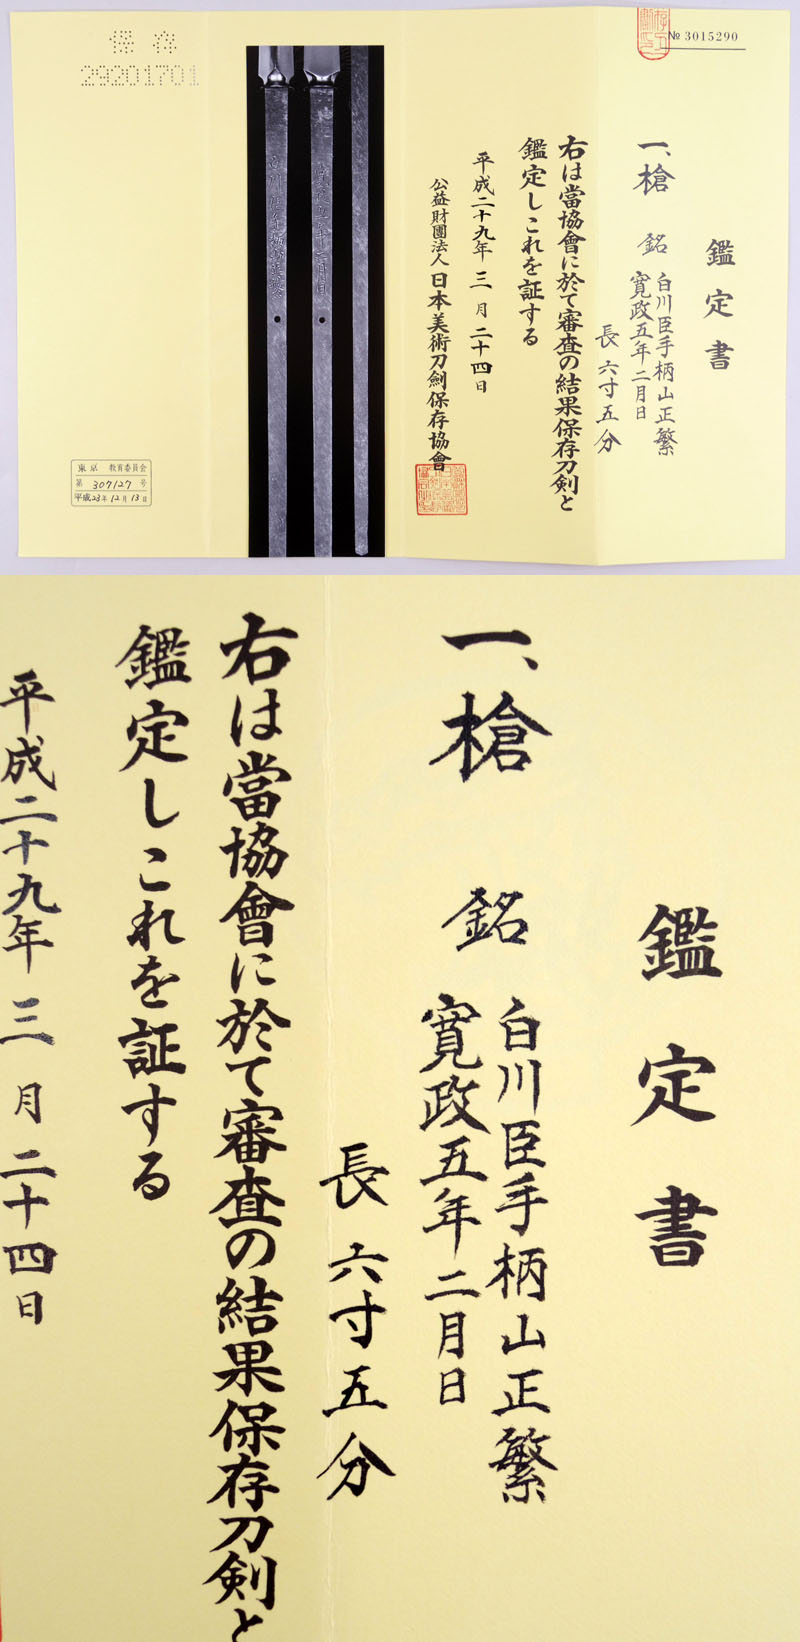 保存
29201701
№ 3015290
鑑定書
一、槍 銘 白川臣手柄山正繁
寛政五年二月日
長 六寸五分
右は當協會に於て審査の結果保存刀剣と
鑑定しこれを証する
平成二十九年 三 月 二十四日
公益財團法人 日本美術刀劍保存協會
東京 教育委員会
第 307127 号
平成23年12月13日
鑑定書
一、槍 銘 白川臣手柄山正繁
寛政五年二月日
長 六寸五分
右は當協會に於て審査の結果保存刀剣と
鑑定しこれを証する
平成二十九年 三 月 二十四日